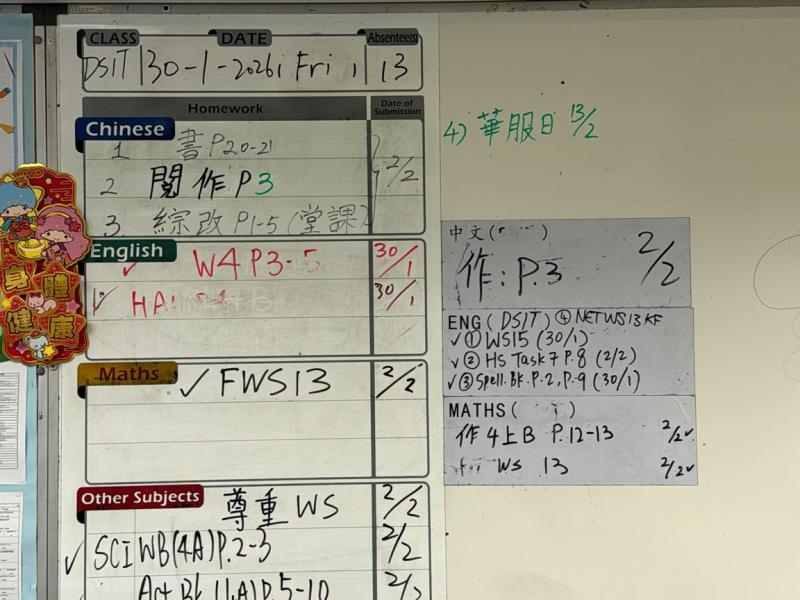 CLASS DATE Absentee(s)
DSIT 30-1-2026, Fri, 13
Homework Date of Submission
Chinese
1 書 P20-21
2 閱 作 P3 2/2
3. 綜 改 P1-5 (堂課)
English
✓ W4 P3-5 30/1
✓ HA 30/1
Maths
✓ FWS13 2/2
Other Subjects
尊重 WS 2/2
✓ SCI WB(4A)P.2-3 2/2
Art Bk (1A) P.5-10 2/2
身體健康
4) 華服日 13/2
中文( )
作: P.3 2/2
ENG (DSIT) ④ NETWS13 KF
✓ ① WS15 (30/1)
✓ ② HS Task 7 P.8 (2/2)
✓ ③ Spell. Bk. P.2, P.9 (30/1)
MATHS ( )
作 4上B P.12-13 2/2✓
WS 13 2/2✓